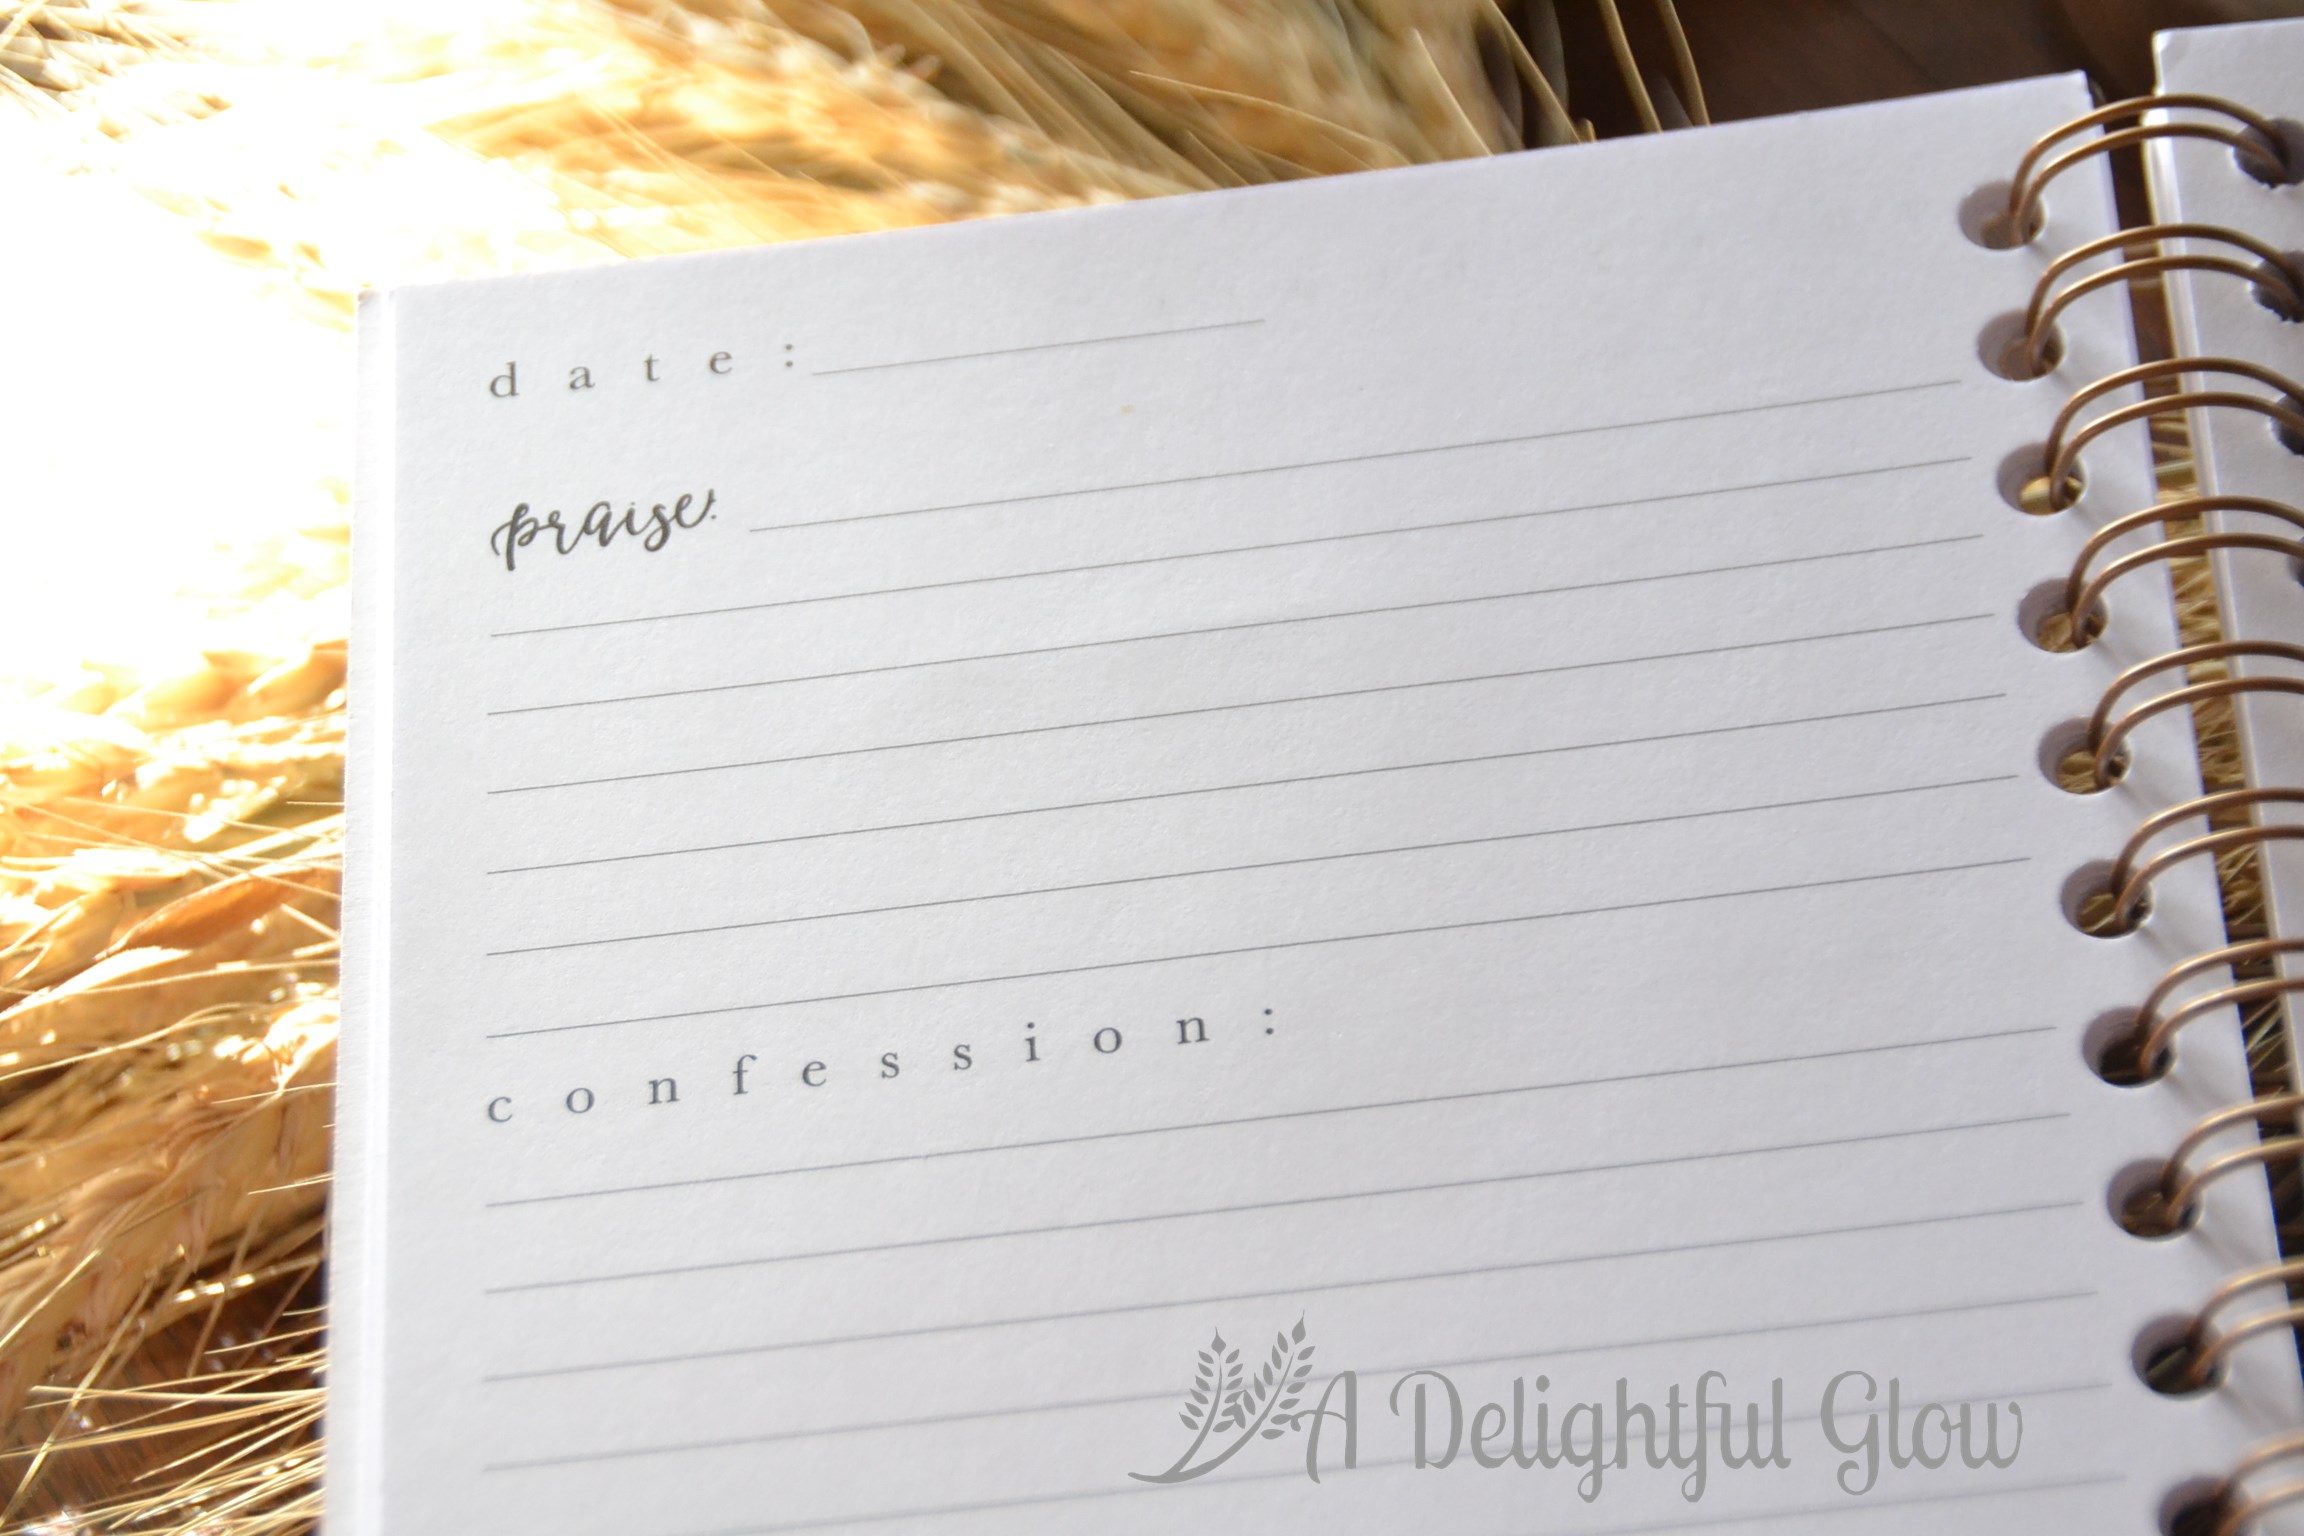 d a t e :
praise:
c o n f e s s i o n :
A Delightful Glow